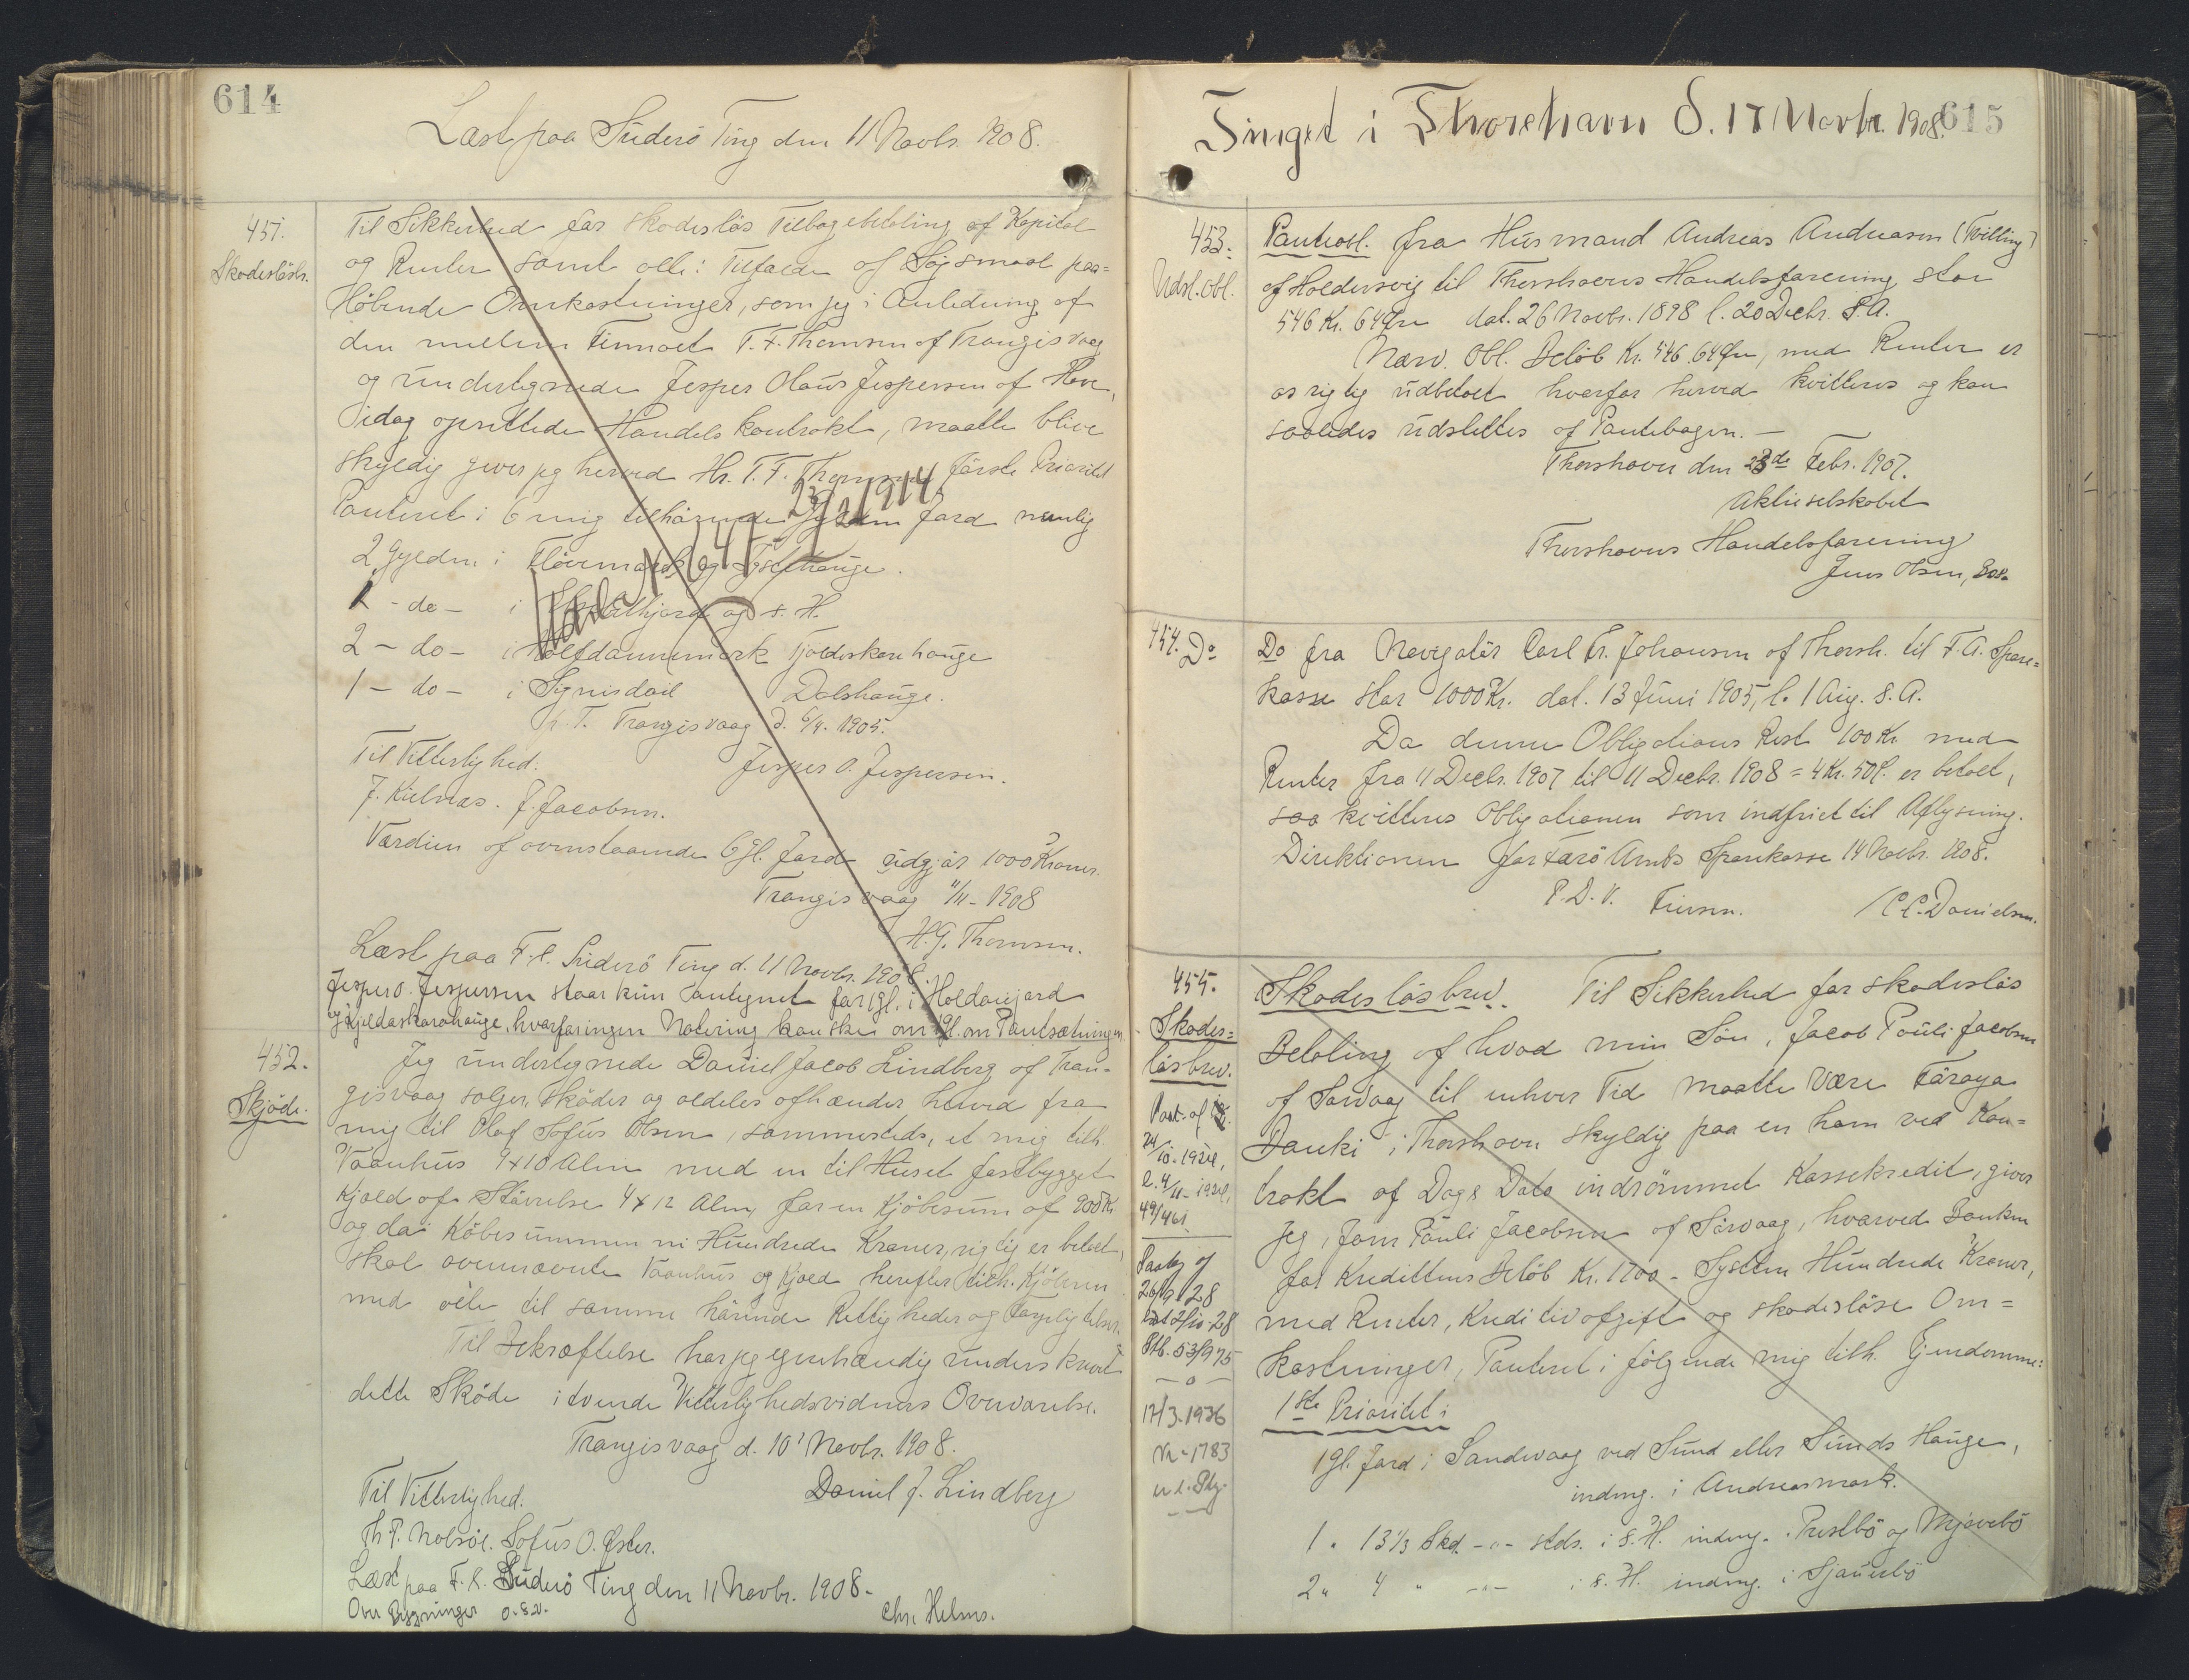 614
Læst paa Suderö Ting den 11 Novbr. 1908.
451.
Skadesløsbr.
Til Sikkerhed for skadesløs Tilbagebetaling af Kapital
og Renter samt alle i Tilfælde af Søgsmaal paa=
løbende Omkostninger, som jeg i Anledning af
den mellem Firmaet T. F. Thomsen af Trangisvaag
og undertegnede Jesper Olaus Jespersen af Hove,
idag oprettede Handelskontrakt, maatte blive
skyldig giver jeg herved Hr. T. F. Thomsen første Prioritet
Panteret i 6 mig tilhørende Gylden Jord nemlig
2 Gylden i
1 - do - i og s. H.
2 - do - i Kjoldeskarehauge
1 - do - i Signisdail Dalshauge.
p. T. Trangisvaag d. 6/4. 1905.
Til Vitterlighed. Jesper O. Jespersen.
J. Kielnæs. J. Jacobsen.
Værdien af ovenstaaende 6 Gl. Jord udgjør 1000 Kroner.
Trangisvaag 11/11 - 1908
H. G. Thomsen.
Læst paa F. l. Suderö Ting d. 11 Novbr. 1908.
Jesper O. Jespersen staar kun antegnet for 1 gl. i Holdanejord
og Kjeldaskarahauge, hvorfor ingen Notering kan ske om 1 gl. om Pantsætningen
452.
Skjøde.
Jeg undertegnede Daniel Jacob Lindberg af Tran-
gisvaag sælger, skøder og aldeles afhænder herved fra
mig til Olaf Sofus Olsen, sammesteds, et mig tilh.
Vaanhus 9x10 Alen med en til Huset fastbygget
Kjald af Størrelse 4 x 12 Alen, for en Kjøbesum af 900 Kr.
og da Købesummen ni Hundrede Kroner, rigtig er betalt,
skal ovennævnte Vaanhus og Kjald herefter tilh. Kjøberen
med alle til samme hørende Rettigheder og Forpligtelser.
Til Bekræftelse har jeg egenhændig underskrevet
dette Skøde i tvende Vitterlighedsvidners Overværelse.
Trangisvaag d. 10' Novbr. 1908.
Til Vitterlighed. Daniel J. Lindberg
Th. P. Nolsøe. Sofus O. Øster.
Læst paa F. l. Suderö Ting den 11 Novbr. 1908.
Over Bygninger o.s.v. Chr. Helms.
615
Tinget i Thorshavn d. 17 Novbr. 1908
453.
Udsl. Obl.
Panteobl. fra Husmand Andreas Andreasen (Tvilling)
af Haldersvig til Thorshavns Handelsforening stor
546 Kr. 64 Øre dat. 26 Novbr. 1898 l. 20 Decbr. S.A.
Nærv. Obl. Beløb Kr. 546 64 Øre, med Renter er
os rigtig udbetalt hvorfor herved kvitteres og kan
saaledes udslettes af Pantebogen. -
Thorshavn den 23de Febr. 1907.
Aktieselskabet
Thorshavns Handelsforening
Jens Olsen,
454. Do
Do fra Navigatør Carl Fr. Johansen af Thorsh. til F. A. Spare=
kasse stor 1000 Kr. dat. 13 Juni 1905, l. 1 Aug. s. A.
Da denne Obligations Rest 100 Kr. med
Renter fra 11 Decbr. 1907 til 11 Decbr. 1908 = 4 Kr. 50 Ø. er betalt,
saa kvitteres Obligationen som indfriet til Aflysning.
Direktionen for Færø Amts Sparekasse 14 Novbr. 1908.
P. D. V. Finsen. / C. C. Danielsen.
455.
Skades=
løsbrev.
24/10-1924,
l. 4/11-1924,
49/461
Paateg. af
26/9 28
Læst 2/10-28
Ptb. 53/975
-o-
17/3.1936
Nr-1783
Skadesløsbrev. Til Sikkerhed for skadesløs
Betaling af hvad min Søn, Jacob Pauli Jacobsen
af Sørvaag til enhver Tid maatte være Føroya
Banki i Thorshavn skyldig paa en ham ved Kon=
trakt af Dags Dato indrømmet Kassekredit, giver
jeg, Joen Pauli Jacobsen af Sørvaag, hvorved Banken
for Kredittens Beløb Kr. 1700 - Sytten Hundrede Kroner,
med Renter, Kreditivafgift og skadesløse Om=
kostninger, Panteret i følgende mig tilh. Ejendomme:
1ste Prioritet i
1 gl. Jord i Sandevaag ved Sund eller Sunds Hauge,
indmg. i Andreasmark.
1 " 13 1/3 Skd. -"- stds. i s. H. indmg. i Prestbø og Mjovebø
2 " 4 " -"- i s. H. indmg. i Sjaurbø